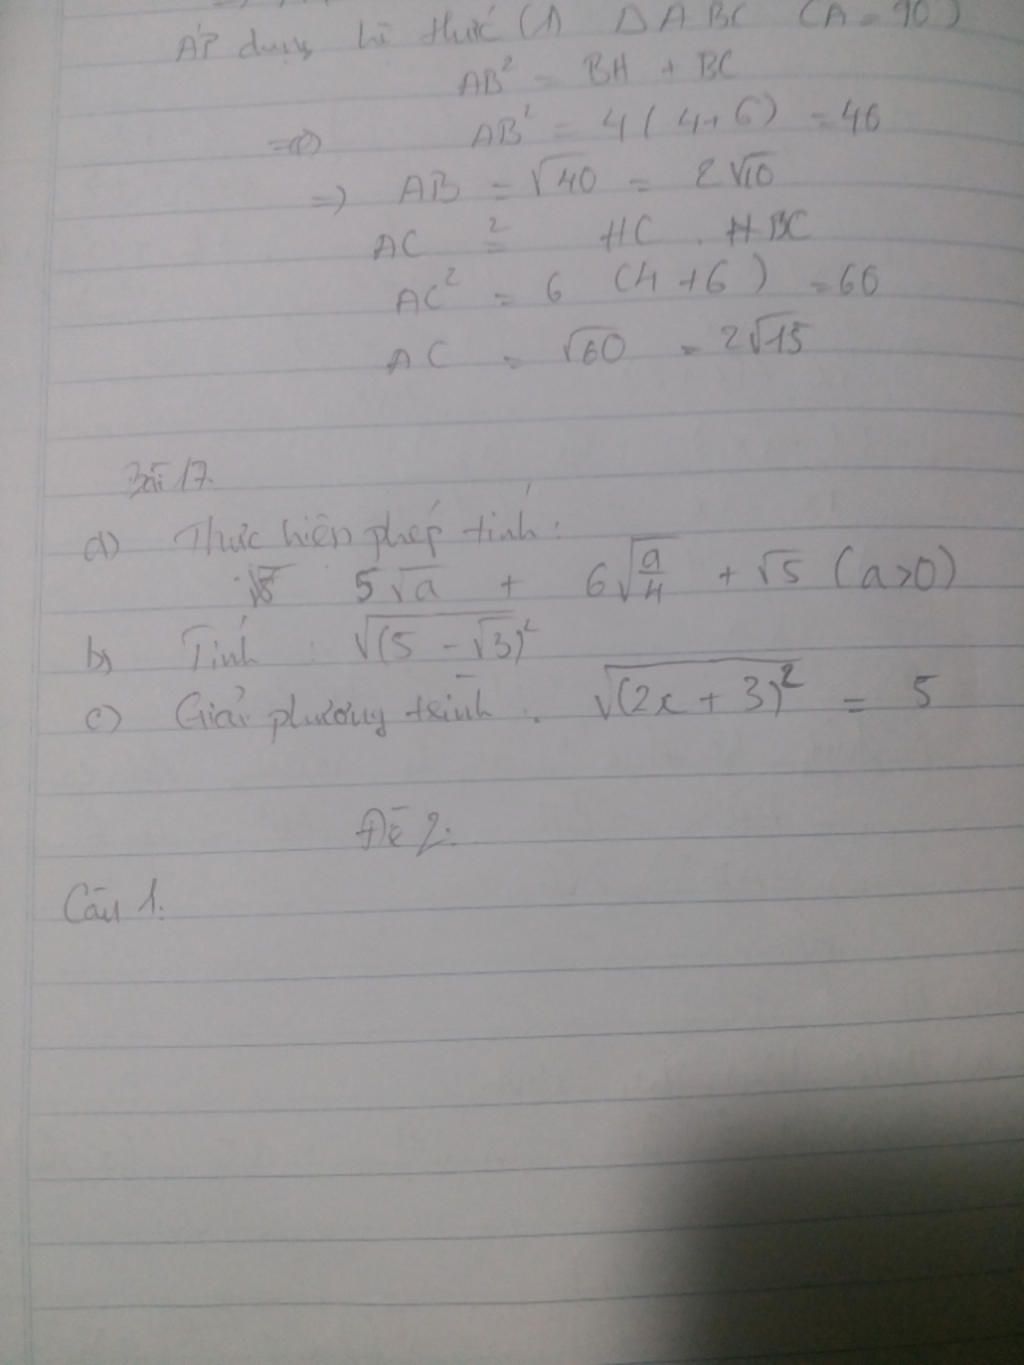 ÁP dụng hệ thức (1) Δ ABC (A = 90)
AB² = BH + BC
=> AB² = 4 ( 4+6) = 40
=> AB = √40 = 2√10
AC ² = HC . BC
AC² = 6 (4+6) = 60
AC = √60 = 2√15
Bài 17.
a) Thực hiện phép tính:
5√a + 6√(a/4) + √5 (a>0)
b) Tính : √(5 - √3)²
c) Giải phương trình . √(2x + 3)² = 5
Đề 2:
Câu 1: